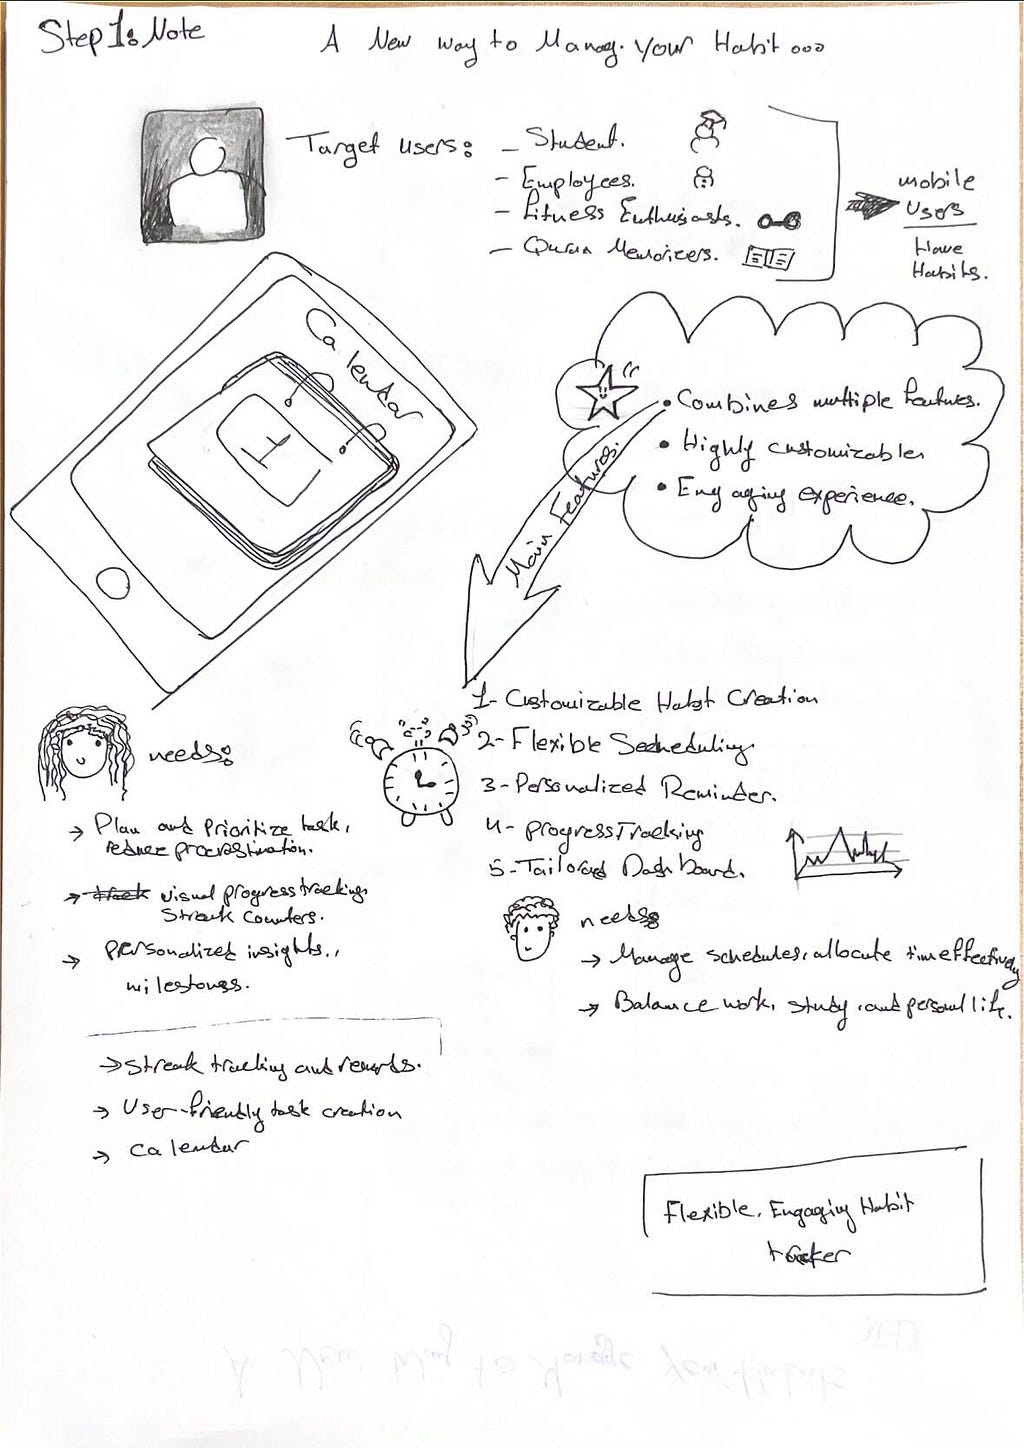 Step 1: Note
A New way to Manag. your Habit ...
Target users:
- Student.
- Employees.
- Fitness Enthusiasts.
- Quran Memorizers.
mobile
users
Have
Habits.
Calendar
1
• Combines multiple features.
• Highly customizable
• Engaging experience.
Main Features.
1- Customizable Habit Creation
2- Flexible Secheduling
3- Personalized Reminder.
4- progress Tracking
5- Tailored Dashboard.
needs:
→ Plan and Prioritize task,
reduce procrastination.
→ track visual progress tracking,
Streak Counters.
→ Personalized insights,
milestones.
needs:
→ Manage schedules, allocate time effectively
→ Balance work, study, and personal life.
→ Streak tracking and rewards.
→ User-friendly task creation
→ Calendar
Flexible, Engaging Habit
tracker
A New Way to Manage your Habits